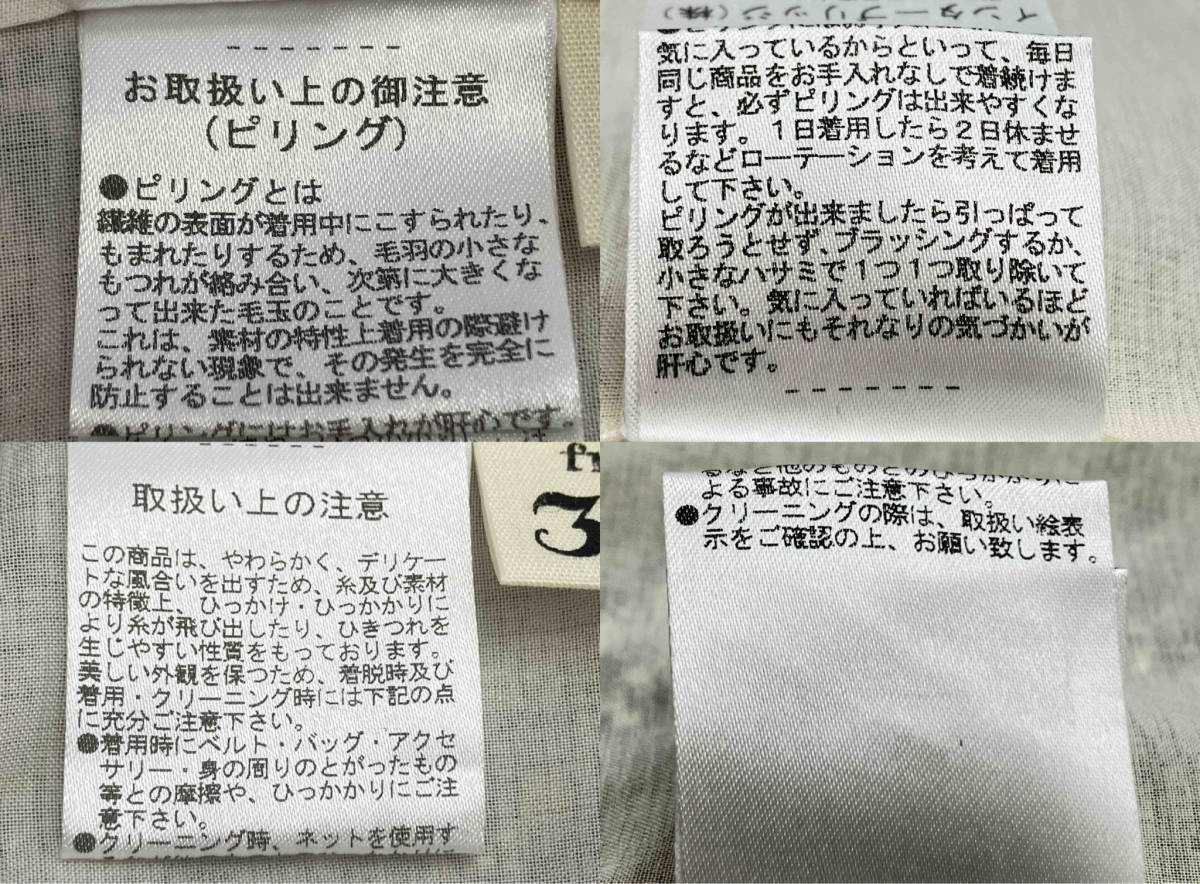 お取扱い上の御注意
(ピリング)
●ピリングとは
繊維の表面が着用中にこすられたり、
もまれたりするため、毛羽の小さな
もつれが絡み合い、次第に大きくな
って出来た毛玉のことです。
これは、素材の特性上着用の際避け
られない現象で、その発生を完全に
防止することは出来ません。
●ピリングにはお手入れが肝心です。
インターブリッジ(株)
気に入っているからといって、毎日
同じ商品をお手入れなしで着続けま
すと、必ずピリングは出来やすくな
ります。1日着用したら2日休ませ
るなどローテーションを考えて着用
して下さい。
ピリングが出来ましたら引っぱって
取ろうとせず、ブラッシングするか、
小さなハサミで1つ1つ取り除いて
下さい。気に入っていればいるほど
お取扱いにもそれなりの気づかいが
肝心です。
取扱い上の注意
この商品は、やわらかく、デリケー
トな風合いを出すため、糸及び素材
の特徴上、ひっかけ・ひっかかりに
より糸が飛び出したり、ひきつれを
生じやすい性質をもっております。
美しい外観を保つため、着脱時及び
着用・クリーニング時には下記の点
に充分ご注意下さい。
●着用時にベルト・バッグ・アクセ
サリー・身の周りのとがったもの
等との摩擦や、ひっかかりにご注
意下さい。
●クリーニング時、ネットを使用す
3
るなど他のものとのひっかかりに
よる事故にご注意下さい。
●クリーニングの際は、取扱い絵表
示をご確認の上、お願い致します。